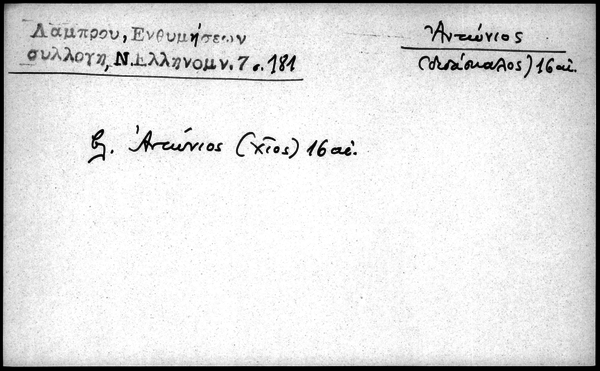 Λάμπρου, Ενθυμήσεων
συλλογη, Ν.Ελληνομν. 7 σ. 181
Ἀντώνιος
(διδάσκαλος) 16 αἰ.
βλ. Ἀντώνιος (χῖος) 16 αἰ.